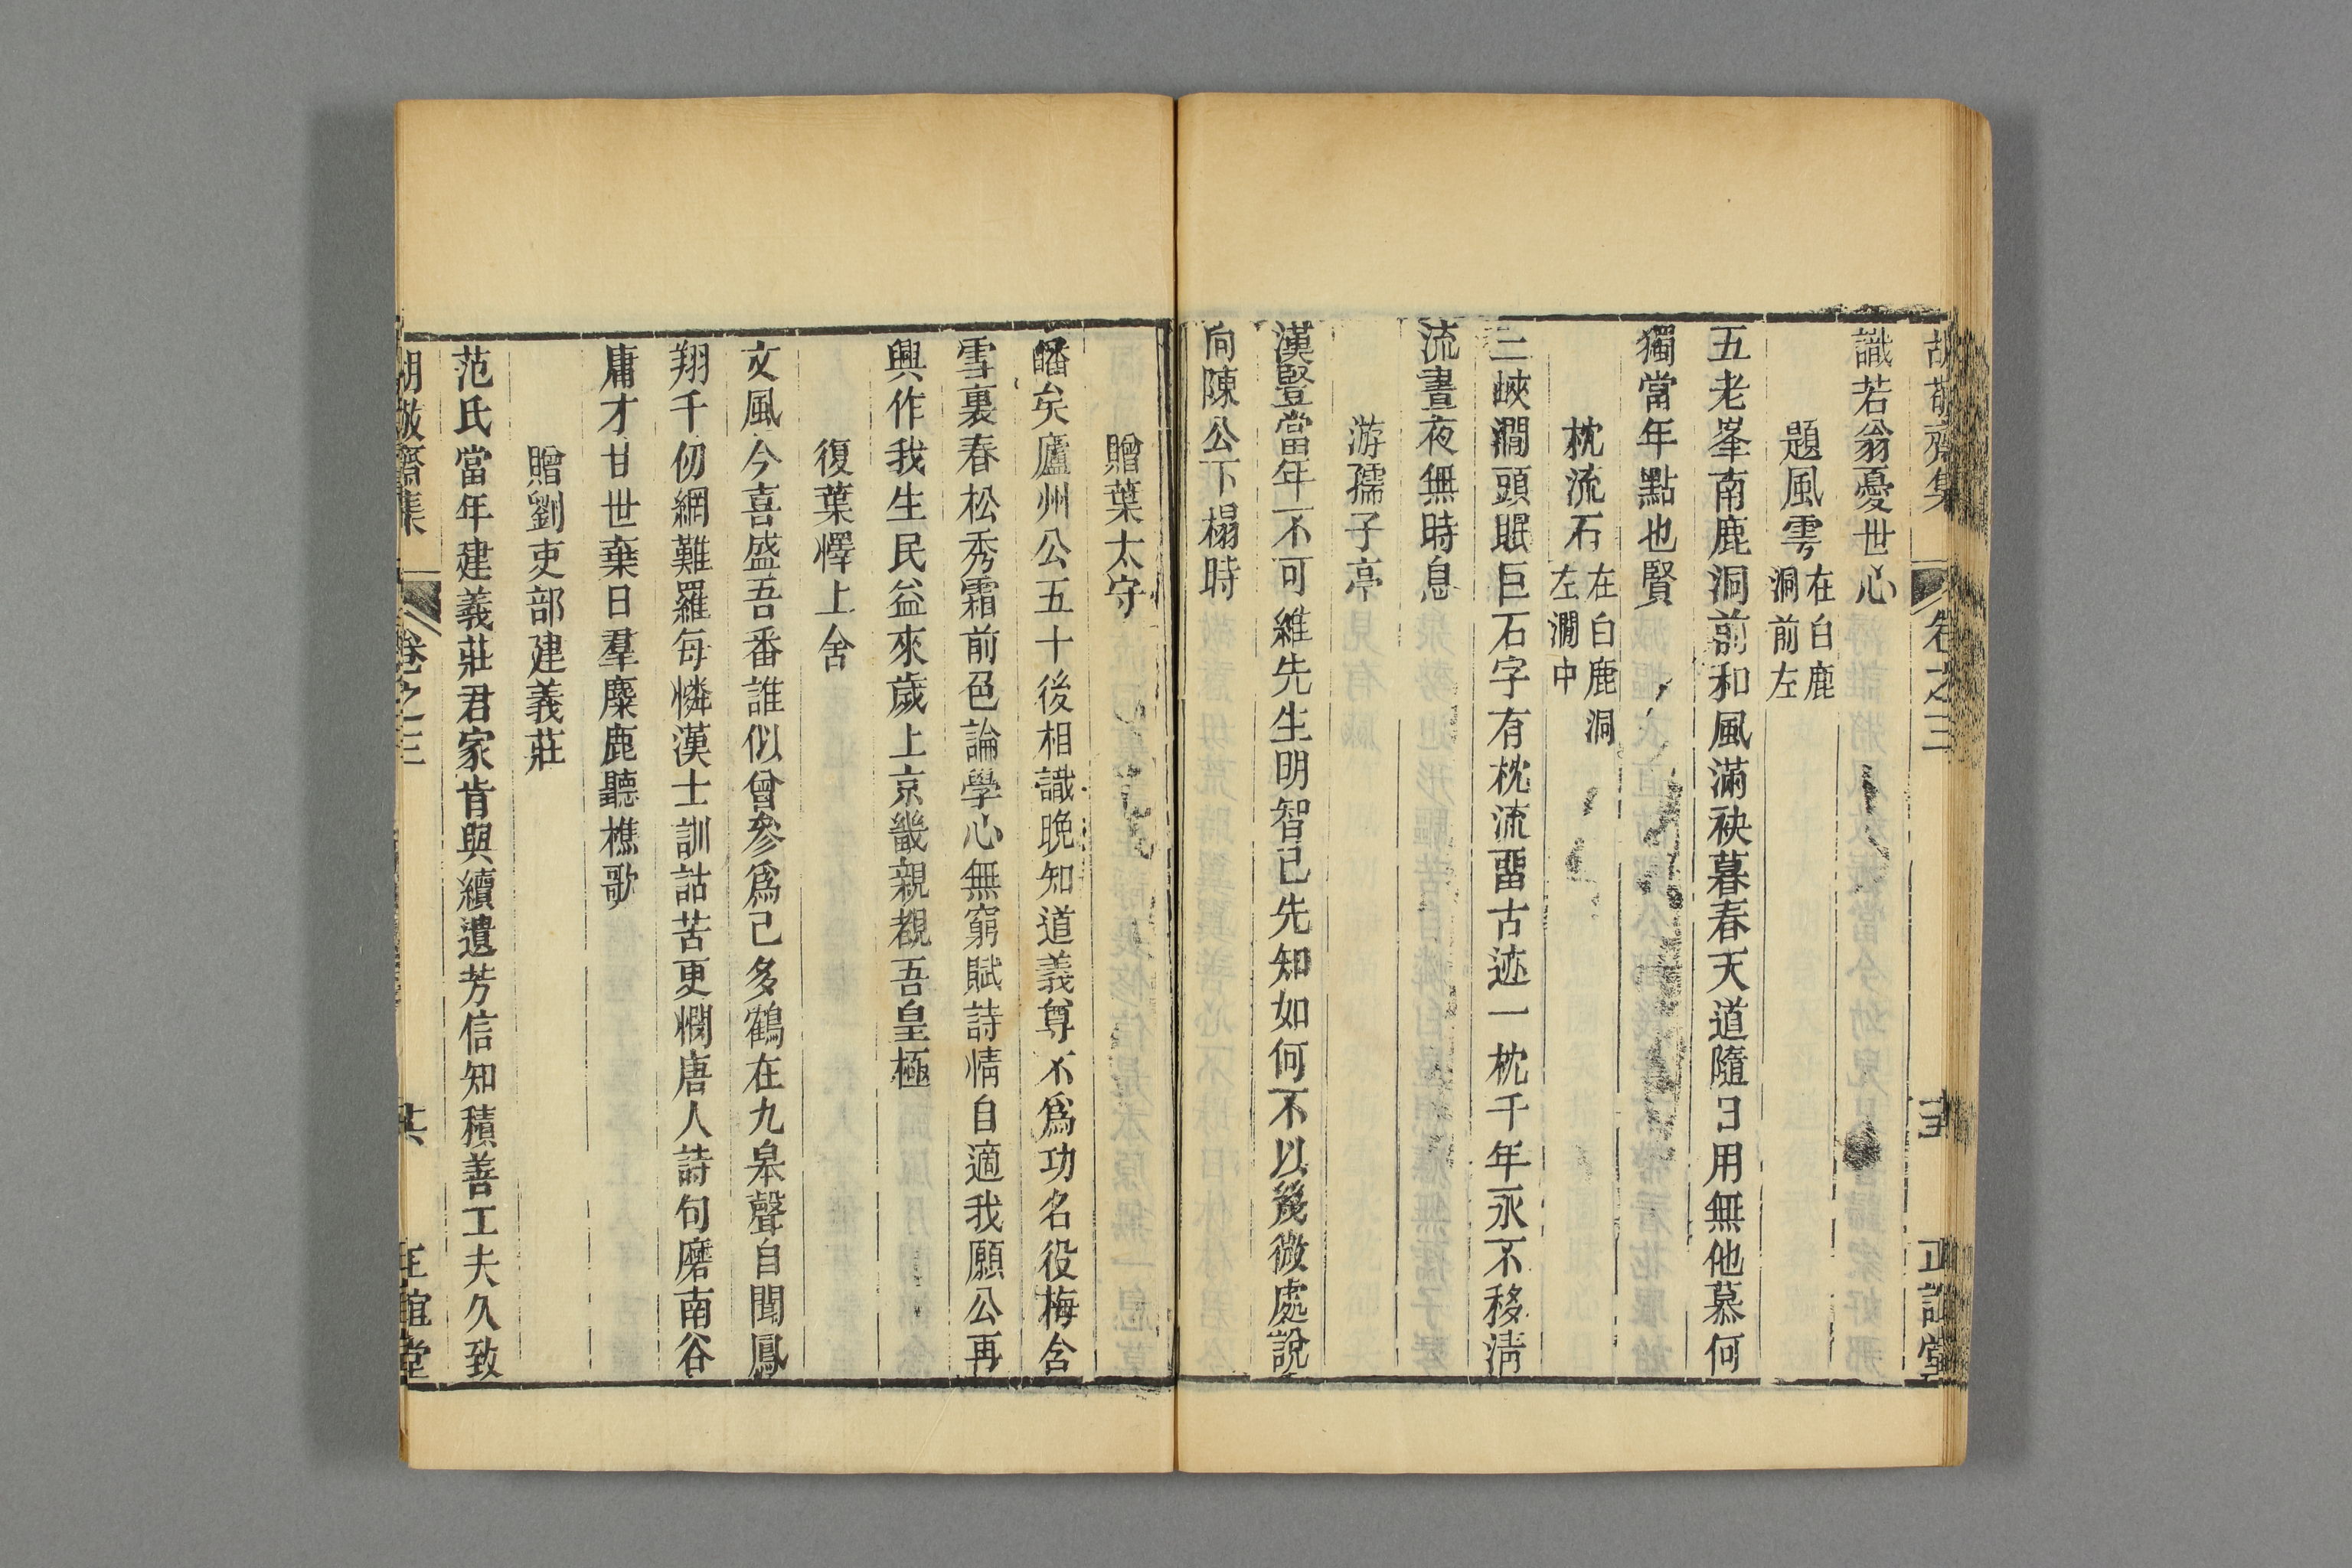 胡敬齋集 卷之三 正誼堂
識若翁憂世心
題風雩在白鹿洞前左
五老峯南鹿洞前和風滿袂暮春天道隨日用無他慕何
獨當年點也賢
枕流石在白鹿洞左澗中
三峽澗頭眠巨石字有枕流畱古迹一枕千年永不移淸
流晝夜無時息
游孺子亭
漢豎當年不可維先生明智已先知如何不以幾微處說
向陳公下榻時
贈葉太守
皤矣廬州公五十後相識晚知道義尊不爲功名役梅含
雪裏春松秀霜前色論學心無窮賦詩情自適我願公再
興作我生民益來歲上京畿親覩吾皇極
復葉懌上舍
文風今喜盛吾番誰似曾參爲己多鶴在九皋聲自聞鳳
翔千仞網難羅每憐漢士訓詁苦更憫唐人詩句磨南谷
庸才甘世棄日羣麋鹿聽樵歌
贈劉吏部建義莊
范氏當年建義莊君家肯與續遺芳信知積善工夫久致
胡敬齋集 卷之三 正誼堂